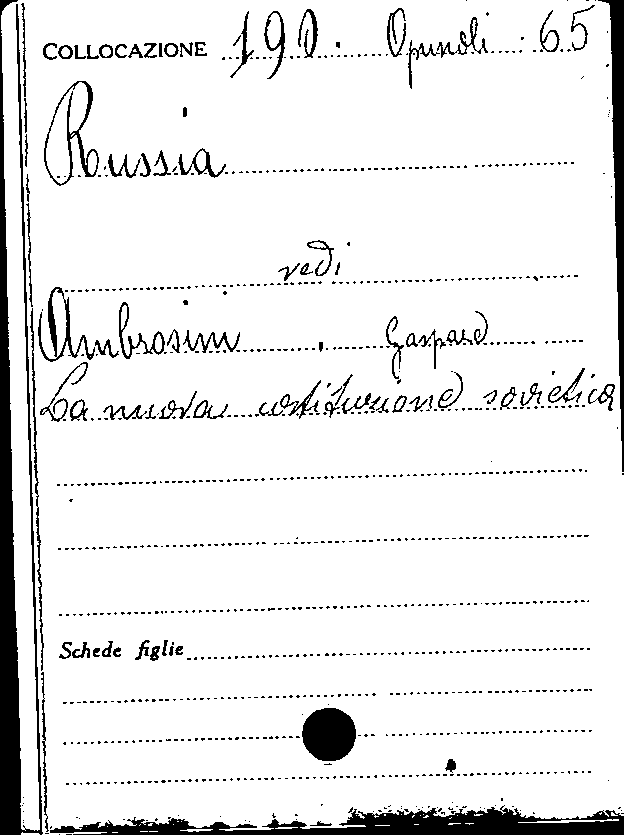 COLLOCAZIONE 190. Opuscoli . 65
Russia
vedi
Ambrosini , Gaspare
La nuova costituzione sovietica
Schede figlie